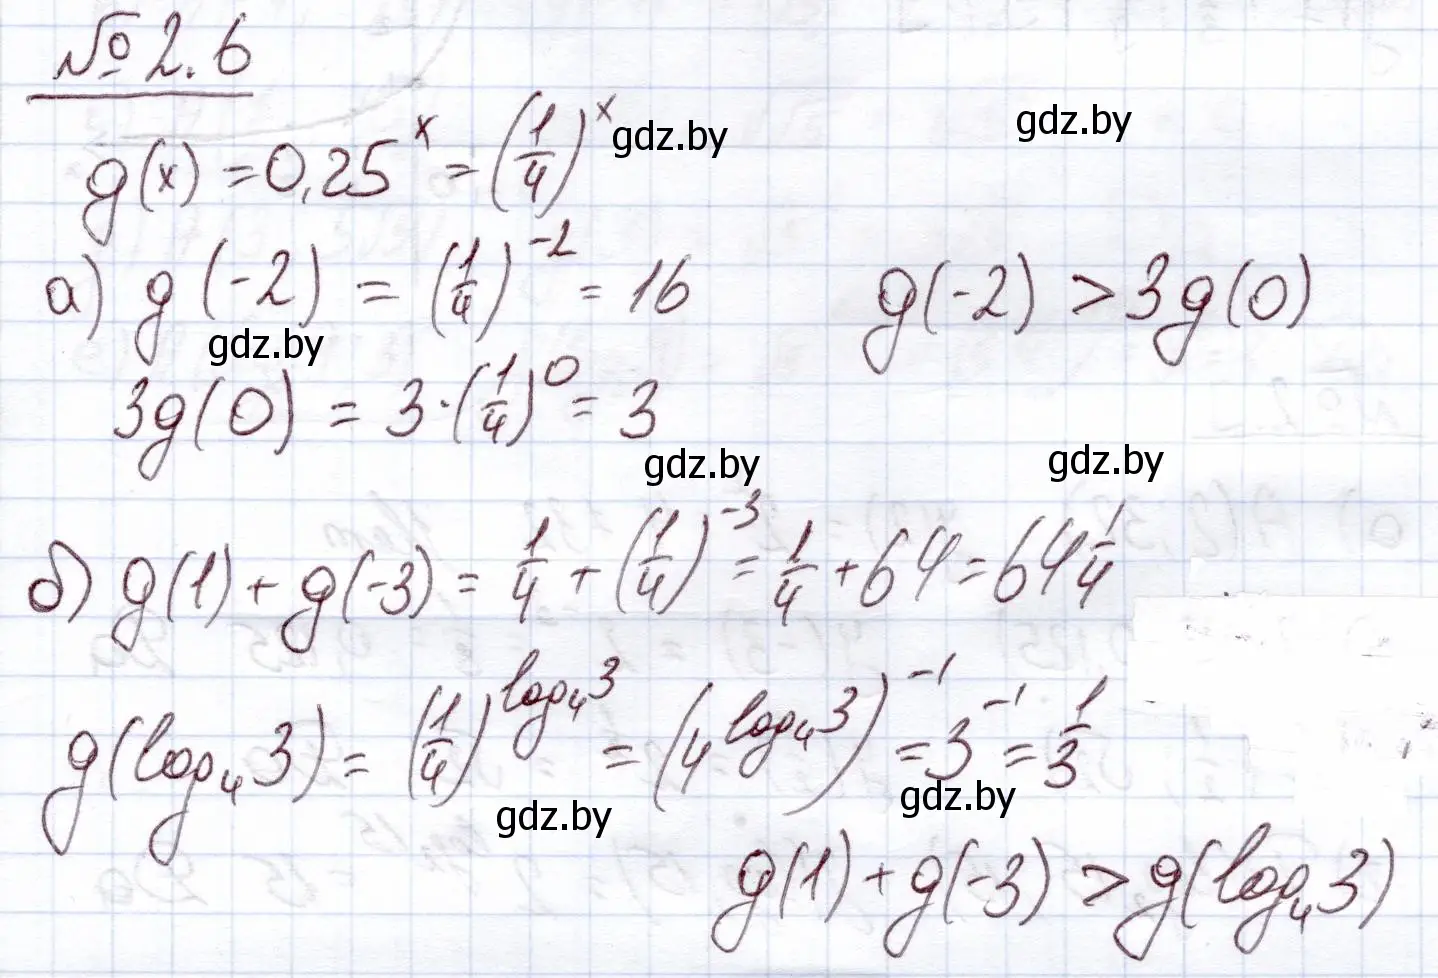 № 2.6
g(x) = 0,25^x = (1/4)^x gdz.by gdz.by
а) g(-2) = (1/4)^-2 = 16 g(-2) > 3g(0)
gdz.by
3g(0) = 3·(1/4)^0 = 3
gdz.by gdz.by
б) g(1) + g(-3) = 1/4 + (1/4)^-3 = 1/4 + 64 = 64 1/4
g(log₄3) = (1/4)^log₄3 = (4^log₄3)^-1 = 3^-1 = 1/3
gdz.by gdz.by
g(1) + g(-3) > g(log₄3)